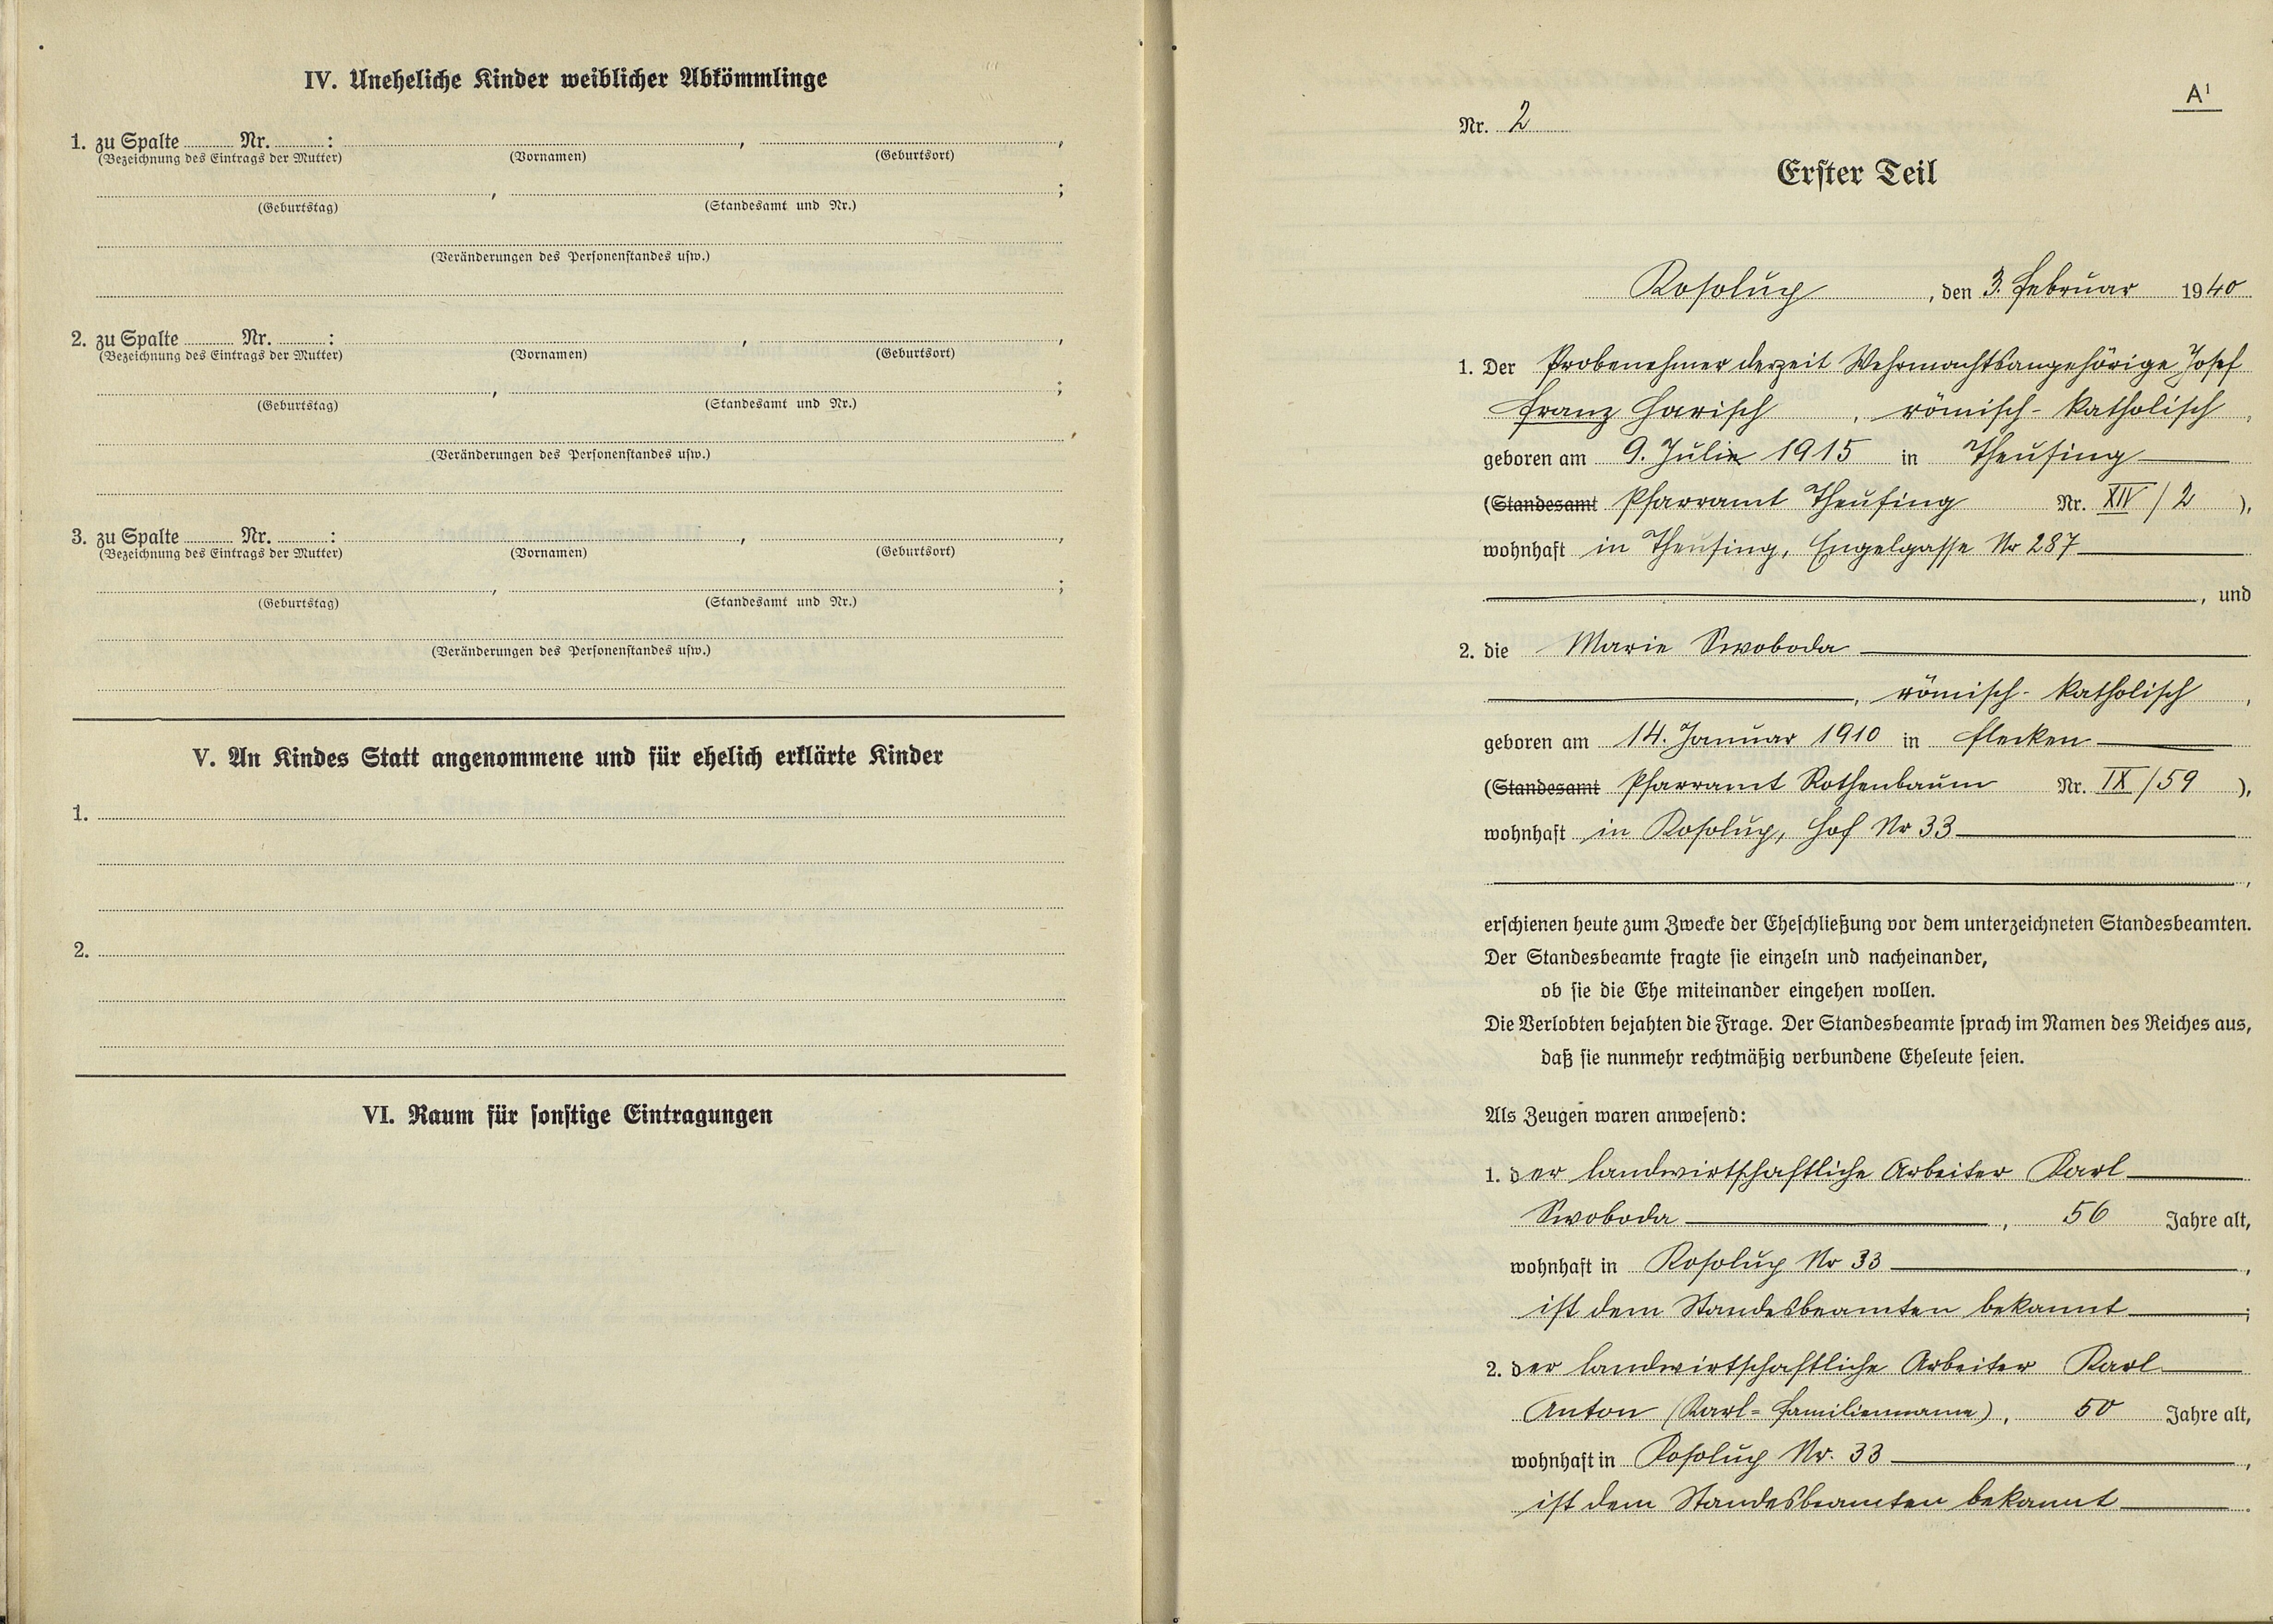 IV. Uneheliche Kinder weiblicher Abkömmlinge
1. zu Spalte ........ Nr. ........ : ........, ........,
(Bezeichnung des Eintrags der Mutter) (Vornamen) (Geburtsort)
........, ........;
(Geburtstag) (Standesamt und Nr.)
(Veränderungen des Personenstandes usw.)
2. zu Spalte ........ Nr. ........ : ........, ........,
(Bezeichnung des Eintrags der Mutter) (Vornamen) (Geburtsort)
........, ........;
(Geburtstag) (Standesamt und Nr.)
(Veränderungen des Personenstandes usw.)
3. zu Spalte ........ Nr. ........ : ........, ........,
(Bezeichnung des Eintrags der Mutter) (Vornamen) (Geburtsort)
........, ........;
(Geburtstag) (Standesamt und Nr.)
(Veränderungen des Personenstandes usw.)
V. An Kindes Statt angenommene und für ehelich erklärte Kinder
1.
2.
VI. Raum für sonstige Eintragungen
A¹
Nr. 2
Erster Teil
Kosolup, den 3. Februar 1940
1. Der Probenehmer derzeit Wehrmachtsangehörige Josef
Franz Harisch, römisch-katholisch,
geboren am 9. Julie 1915 in Theusing
(Standesamt Pfarramt Theusing Nr. XIV/2),
wohnhaft in Theusing, Engelgasse Nr 287
, und
2. die Marie Swoboda
, römisch-katholisch,
geboren am 14. Januar 1910 in Flecken
(Standesamt Pfarramt Rothenbaum Nr. IX/59),
wohnhaft in Kosolup, Hof Nr 33
,
erschienen heute zum Zwecke der Eheschließung vor dem unterzeichneten Standesbeamten.
Der Standesbeamte fragte sie einzeln und nacheinander,
ob sie die Ehe miteinander eingehen wollen.
Die Verlobten bejahten die Frage. Der Standesbeamte sprach im Namen des Reiches aus,
daß sie nunmehr rechtmäßig verbundene Eheleute seien.
Als Zeugen waren anwesend:
1. der landwirtschaftliche Arbeiter Karl
Swoboda, 56 Jahre alt,
wohnhaft in Kosolup Nr 33,
ist dem Standesbeamten bekannt;
2. der landwirtschaftliche Arbeiter Karl
Anton (Karl=Familienname), 50 Jahre alt,
wohnhaft in Kosolup Nr. 33,
ist dem Standesbeamten bekannt.